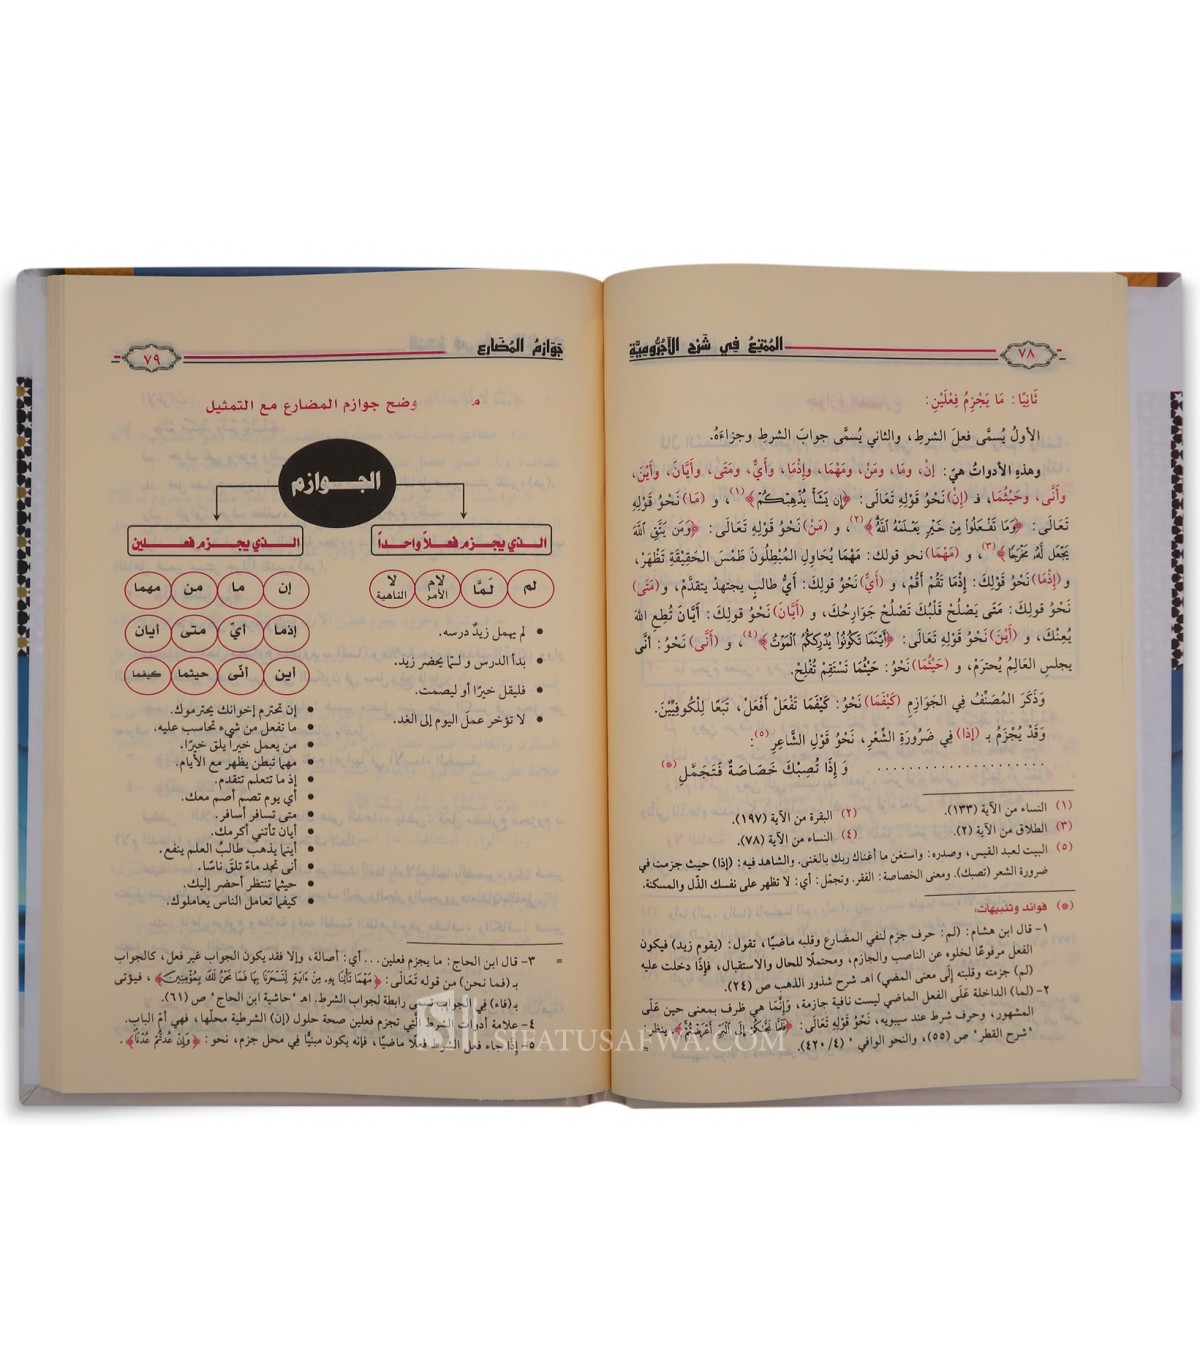 ٧٨
المُمْتِعُ فِي شَرْحِ الآجُرُّومِيَّةِ
ثَانِيًا: مَا يَجْزِمُ فِعْلَيْنِ:
الأولُ يُسمَّى فعلَ الشرطِ، والثاني يُسمَّى جوابَ الشرطِ وجزاءَهُ.
وهذهِ الأدواتُ هيَ: إنْ، ومَا، ومَنْ، ومَهْمَا، وإِذْمَا، وأَيٌّ، ومَتَى، وأَيَّانَ، وأَيْنَ،
وأَنَّى، وحَيْثُمَا، فـ (إِنْ) نَحْوُ قَوْلِهِ تَعَالَى: ﴿إِن يَشَأْ يُذْهِبْكُمْ﴾(١)، و (مَا) نَحْوُ قَوْلِهِ
تَعَالَى: ﴿وَمَا تَفْعَلُوا مِنْ خَيْرٍ يَعْلَمْهُ اللَّهُ﴾(٢)، و (مَنْ) نَحْوُ قَوْلِهِ تَعَالَى: ﴿وَمَن يَتَّقِ اللَّهَ
يَجْعَل لَّهُ مَخْرَجًا﴾(٣)، و (مَهْمَا) نحو قولك: مَهْمَا يُحَاوِلِ المُبْطِلُونَ طَمْسَ الحَقِيْقَةِ تَظْهَرْ،
و (إِذْمَا) نَحْوُ قَوْلِكَ: إِذْمَا تَقُمْ أَقُمْ، و (أَيٌّ) نَحْوُ قولِكَ: أَيُّ طالبٍ يجتهدْ يتقدَّمْ، و (مَتَى)
نَحْوُ قولِكَ: مَتَى يَصْلُحْ قَلْبُكَ تَصْلُحْ جَوَارِحُكَ، و (أَيَّانَ) نَحْوُ قولِكَ: أَيَّانَ تُطِعِ اللهَ
يُعِنْكَ، و (أَيْنَ) نَحْوُ قَوْلِهِ تَعَالَى: ﴿أَيْنَمَا تَكُونُوا يُدْرِككُّمُ الْمَوْتُ﴾(٤)، و (أَنَّى) نَحْوُ: أَنَّى
يجلسِ العَالِمُ يُحترَمْ، و (حَيْثُمَا) نَحْوُ: حَيْثُمَا تَسْتَقِمْ تُفْلِحْ.
وَذَكَرَ المُصَنِّفُ فِي الجَوَازِمِ (كَيْفَمَا) نَحْوُ: كَيْفَمَا تَفْعَلْ أَفْعَلْ، تَبَعًا لِلْكُوفِيِّيْنَ.
وَقَدْ يُجْزَمُ بـ (إِذَا) فِي ضَرُورَةِ الشِّعْرِ، نَحْوُ قَوْلِ الشَّاعِرِ(٥):
. . . . . . . . . . . . . . . . . . . . وَ إِذَا تُصِبْكَ خَصَاصَةٌ فَتَجَمَّلِ(*)
(١) النساء من الآية (١٣٣). (٢) البقرة من الآية (١٩٧).
(٣) الطلاق من الآية (٢). (٤) النساء من الآية (٧٨).
(٥) البيت لعبد القيس، وصدره: واستغن ما أغناك ربك بالغنى. والشاهد فيه: (إذا) حيث جزمت في
ضرورة الشعر (تصبك). ومعنى الخصاصة: الفقر. وتجمّل: أي: لا تظهر على نفسك الذّل والمسكنة.
(*) فوائد وتنبيهات:
١- قال ابن هشام: (لم: حرف جزم لنفي المضارع وقلبه ماضيًا، تقول: (يقوم زيد) فيكون
الفعل مرفوعًا لخلوه عن الناصب والجازم، ومحتملًا للحال والاستقبال، فإذا دخلت عليه
(لم) جزمته وقلبته إلى معنى المضي) اهـ شرح شذور الذهب ص (٢٤).
٢- (لما) الداخلة على الفعل الماضي ليست نافية جازمة، وإنما هي ظرف بمعنى حين على
المشهور، وحرف شرط عند سيبويه، نَحْوُ قَوْلِهِ تَعَالَى: ﴿فَلَمَّا نَجَّاكُمْ إِلَى الْبَرِّ أَعْرَضْتُمْ﴾، ينظر:
"شرح القطر" ص (٥٥)، والنحو الوافي" (٤/٤٢٠). =
جَوَازِمُ المُضَارِعِ
٧٩
وضح جوازم المضارع مع التمثيل
الجـوازم
الذي يجزم فعلاً واحداً
الذي يجزم فعلين
لم لَمَّا لام الأمر لا الناهية
إن ما من مهما
إذما أيّ متى أيان
أين أنّى حيثما كيفما
لم يهمل زيدٌ درسه.
بدأ الدرس و لـمّا يحضر زيد.
فليقل خيرًا أو ليصمت.
لا تؤخر عملَ اليوم إلى الغد.
إن تحترم إخوانك يحترموك.
ما تفعل من شيء تحاسب عليه.
من يعمل خيراً يلق خيرًا.
مهما تبطن يظهر مع الأيام.
إذ ما تتعلم تتقدم.
أي يوم تصم أصم معك.
متى تسافر أسافر.
أيان تأتني أكرمك.
أينما يذهب طالبُ العلم ينفع.
أنى تجد ماءً تلقَ ناسًا.
حيثما تنتظر أحضر إليك.
كيفما تعامل الناس يعاملوك.
= ٣- قال ابن الحاج: ما يجزم فعلين... أي: أصالة، وإلا فقد يكون الجواب غير فعل، كالجواب
بـ (فما نحن) من قوله تَعَالَى: ﴿مَهْمَا تَأْتِنَا بِهِ مِنْ آيَةٍ لِّتَسْحَرَنَا بِهَا فَمَا نَحْنُ لَكَ بِمُؤْمِنِينَ﴾، فيؤتى
بـ (فاء) في الجواب تسمى رابطة لجواب الشرط. اهـ "حاشية ابن الحاج" ص (٦١).
٤- علامة أدوات الشرط التي تجزم فعلين صحة حلول (إن) الشرطية محلّها، فهي أمّ الباب.
٥- إذا جاء فعل الشرط فعلًا ماضيًا، فإنه يكون مبنيًّا في محل جزم، نحو: ﴿وَإِنْ عُدتُّمْ عُدْنَا﴾.
SIFATUSAFWA.COM